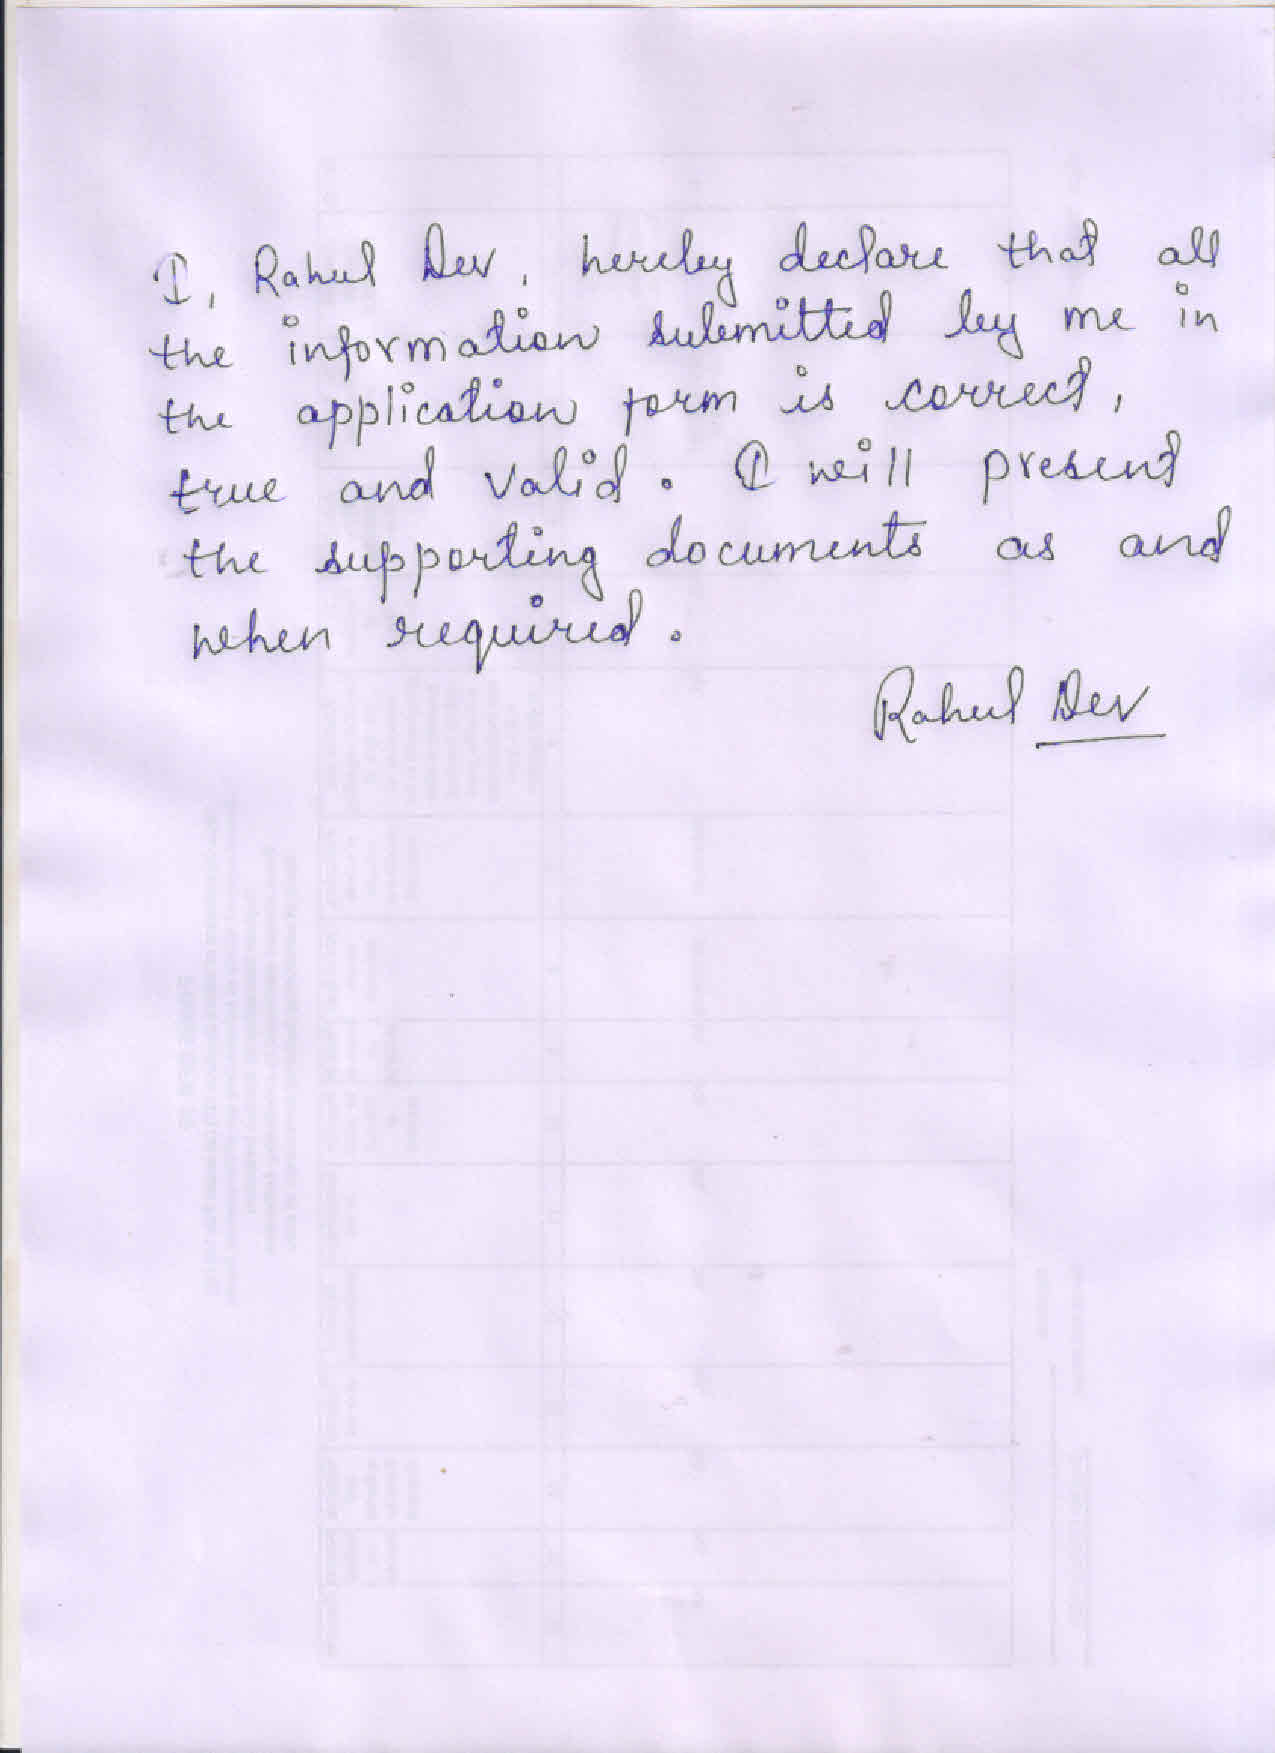 I, Rahul Dev, hereby declare that all
the information submitted by me in
the application form is correct,
true and valid. I will present
the supporting documents as and
when required.
Rahul Dev